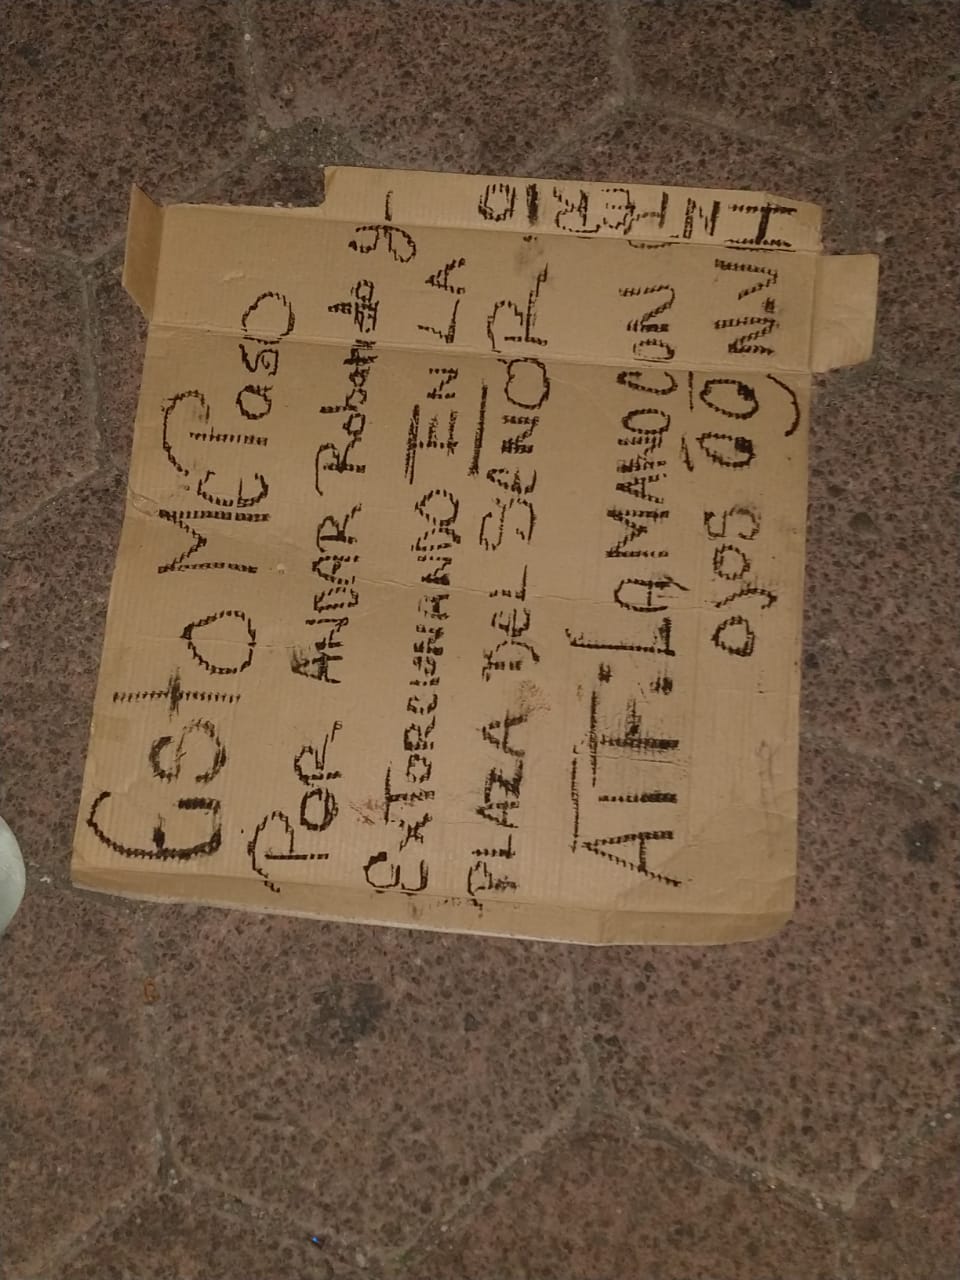 EsTO ME PasO
Por ANDAR Robando y-
EXTORCIONANDO EN LA
PLAZA DEL SEÑOR.
ATT: LA MANO CON
OJOS